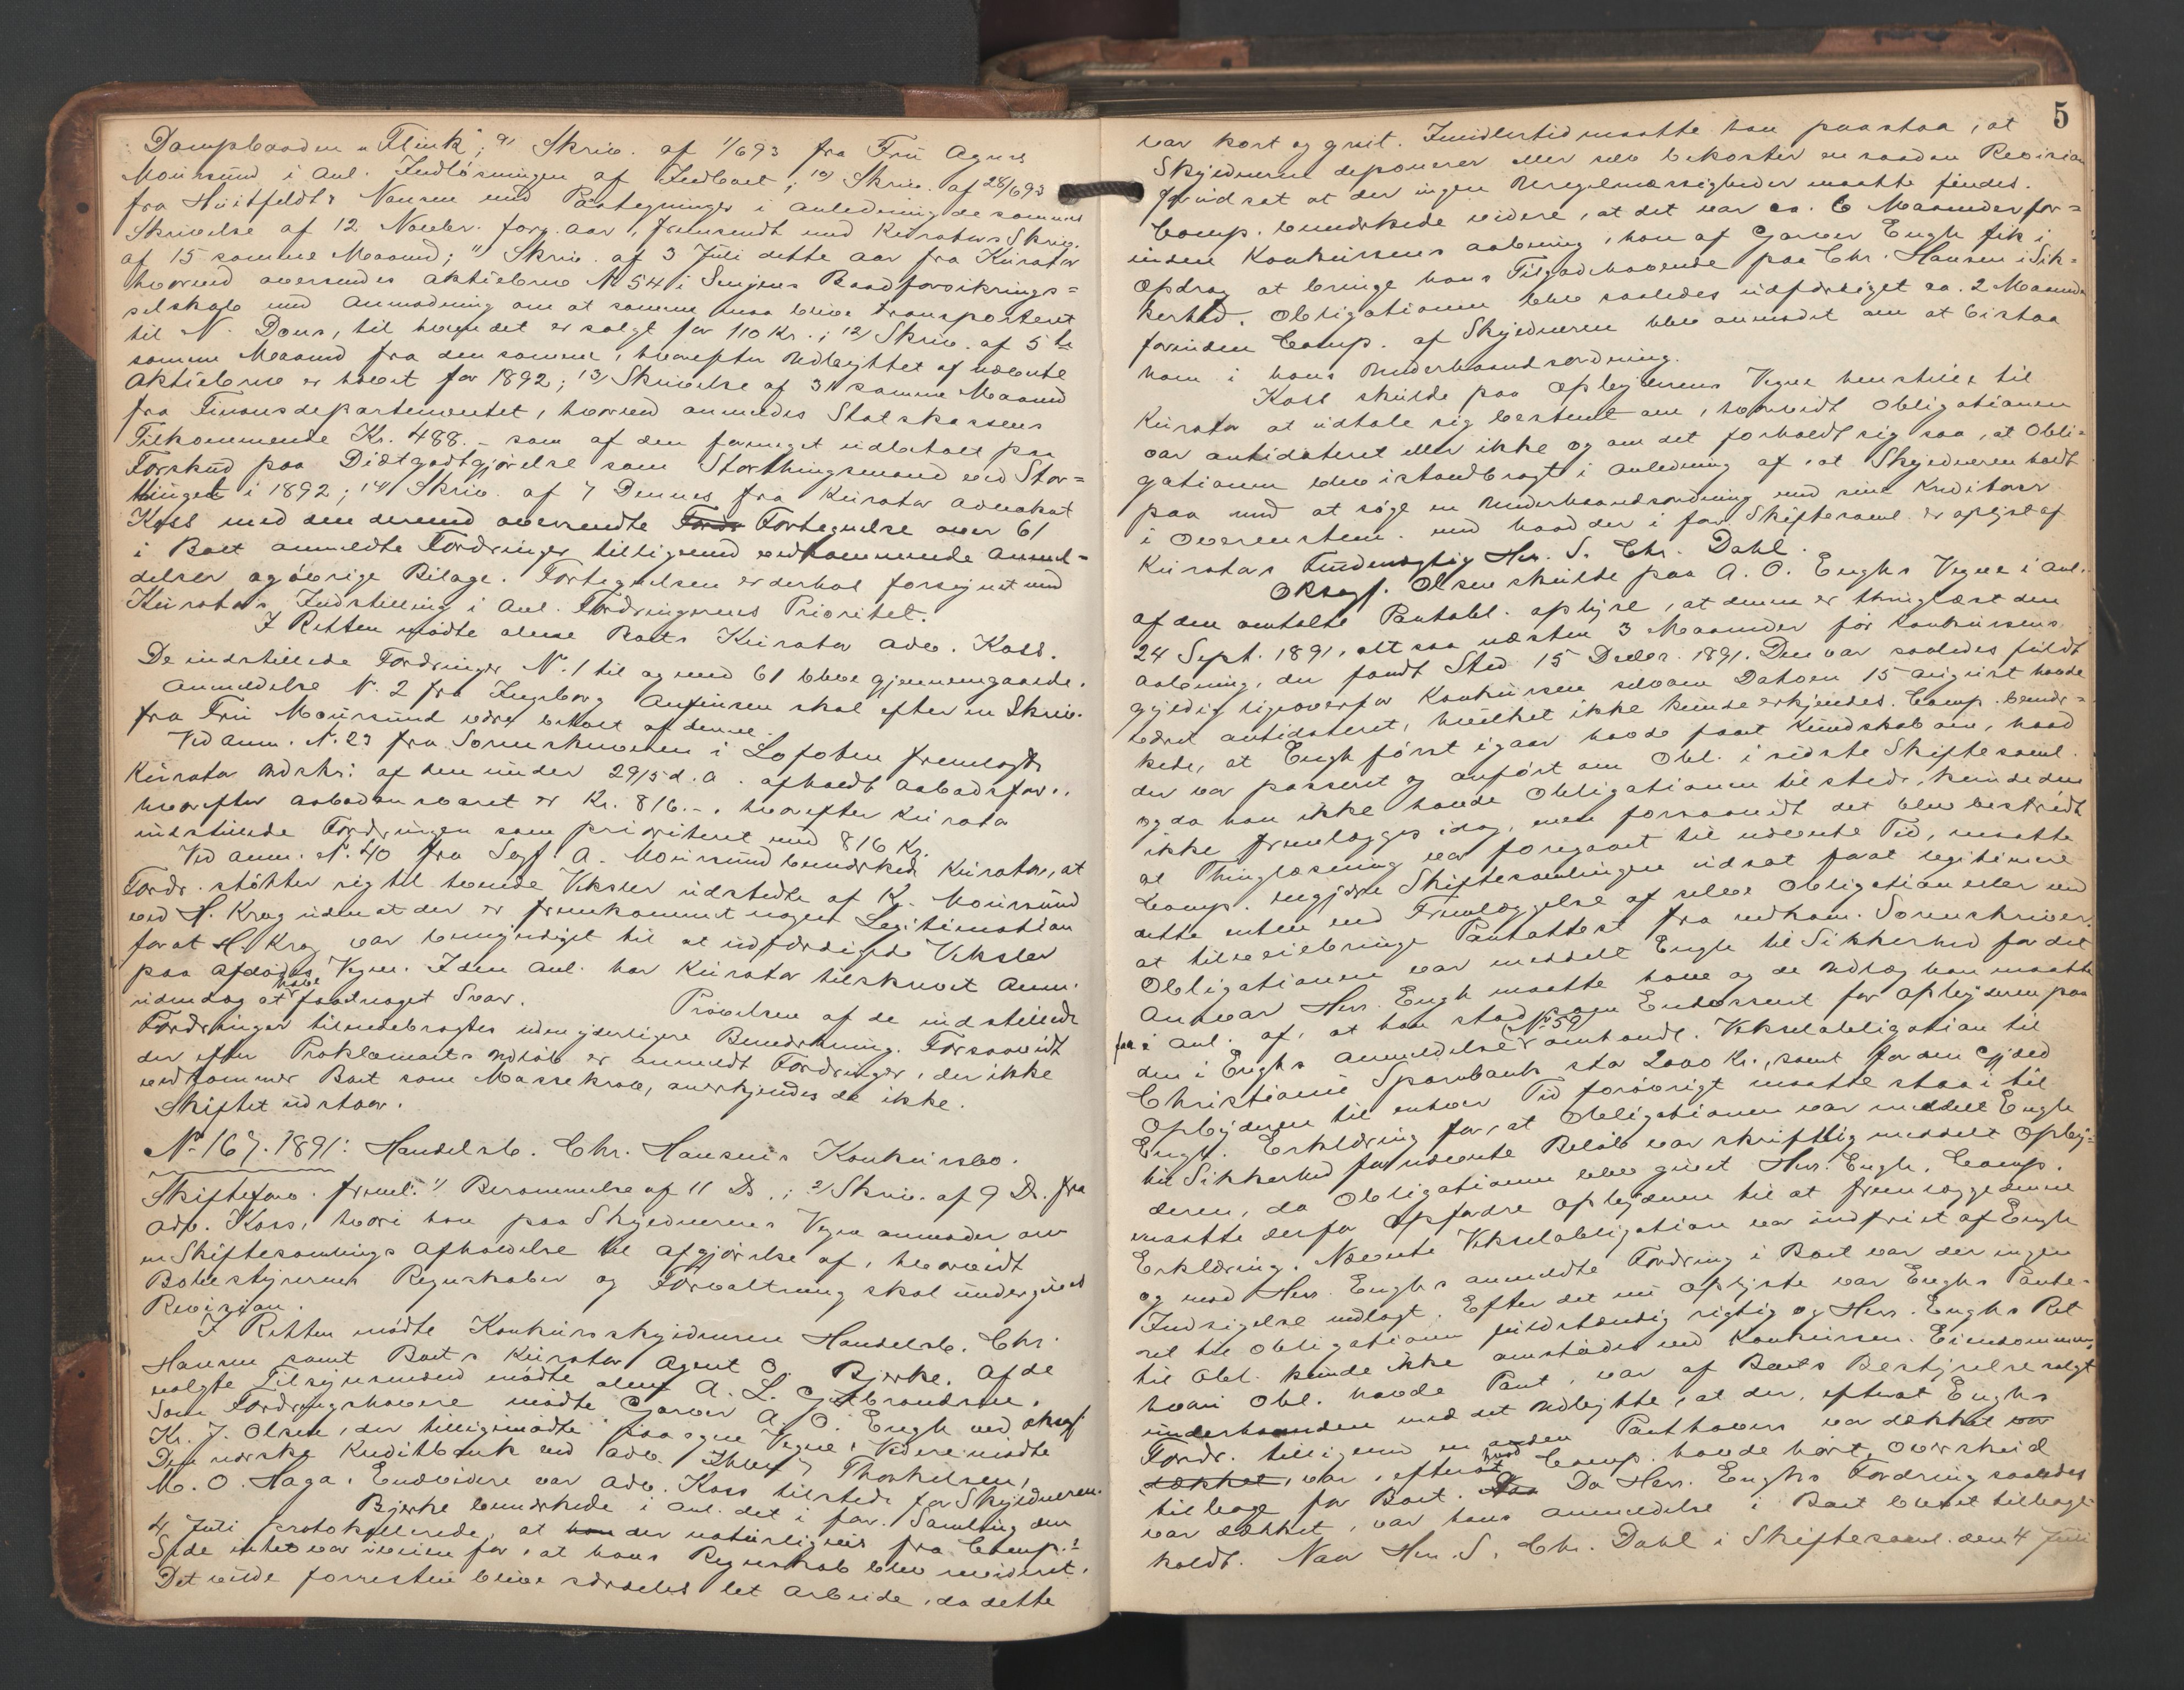 Dampbaaden "Flink"; 9) Skriv. af 1/6 93 fra Fru Agnes
Moursund i Anl. Indløsningen af Indboet; 10) Skriv. af 28/6 93
fra Huitfeldt & Nansen med Paategninger i Anledning de sammes
Skrivelse af 12 Novbr. forg. Aar, fremsendt med Kurators Skriv.
af 15 samme Maaned; 11) Skriv. af 3 Juli dette Aar fra Kurator
hvorved oversendes Aktiebrev N 54 i Senjens Baadforsikrings=
selskab med Anmodning om at samme maa blive transporteret
til N. Dons, til hvem det er solgt for 110 Kr.; 12) Skriv. af 5te
samme Maaned fra den samme, hvorefter Udbyttet af nævnte
Aktiebrev er hævet for 1892; 13) Skrivelse af 31 samme Maaned
fra Finansdepartementet, hvorved anmeldes Statskassens
Tilkommende Kr. 488.- som af den formeget udbetalt paa
Forskud paa Diætgodtgjørelse som Storthingsmand ved Stor=
thinget i 1892; 14) Skriv. af 7 Dennes fra Kurator Advokat
Koss med den derved oversendte Fortegnelse over 61
i Boet anmeldte Fordringer tilligemed vedkommende Anmel=
delser og øvrige Bilage. Fortegnelsen er derhos forsynet med
Kurators Indstilling i Anl. Fordringernes Prioritet.
I Retten mødte alene Boets Kurator Adv. Koss.
De indstillede Fordringer N. 1 til og med 61 blev gjennemgaaede.
Anmeldelse N. 2 fra Ingeborg Antonsen skal efter en Skriv.
fra Fru Moursund være betalt af denne.
Ved Anm. N. 23 fra Sorenskriveren i Lofoten fremlagde
Kurator Udskr. af den under 29/5 d. A. afholdt Aabodsforr.,
hvorefter Aabodsansvaret er Kr. 816.-, hvorefter Kurator
indstillede Fordringen som prioriteret med 816 Kr.
Ved Anm. N. 40 fra Sagf. A. Moursund bemærkede Kurator, at
Fordr. støtter sig til tvende Veksler udstedte af Kr. Moursund
ved H. Krog uden at der er fremkommet nogen Legitimation
for at H. Krog var bemyndiget til at udfærdige Veksler
paa Afdødes Vegne. I den Anl. har Kurator tilskrevet Anm.
uden dog at have faaet noget Svar. Prøvelsen af de indstillede
Fordringer tilendebragtes uden yderligere Bemærkning. Forsaavidt
der efter Proklamaets Udløb er anmeldt Fordringer, der ikke
vedkommer Boet som Massekrav, anerkjendes de ikke.
Skiftet udstaar.
No. 167. 1891: Handelsb. Chr. Hansens Konkursbo.
Skifteforv. freml. 1) Berammelse af 11 Ds.; 2) Skriv. af 9 Ds. fra
Adv. Koss, hvori han paa Skyldnerens Vegne anmoder om
en Skiftesamlings Afholdelse til Afgjørelse af, hvorvidt
Bobestyrernes Regnskaber og Forvaltning skal undergives
Revision.
I Retten mødte Konkursskyldneren Handelsb. Chr.
Hansen samt Boets Kurator Agent O. Bjerke. Af de
valgte Tilsynsmænd mødte alene A. L. Gulbrandsen.
Som Fordringshavere mødte Garver A. O. Engh ved Oksagf.
Kr. J. Olsen, der tilligemødte paa egne Vegne. Videre mødte
Den norske Kreditbank ved Adv. Ihlen, Thorkelsen,
M. O. Haga. Endvidere var Adv. Koss tilstede for Skyldneren.
Bjerke bemærkede i Anl. det i forr. Samling den
4 Juli protokollerede, at der naturligvis fra Comp.s
Side intet var iveien for, at hans Regnskab blev revideret.
Det vilde forresten blive særdeles let Arbeide, da dette
5
var kort og greit. Imidlertid maatte han paastaa, at
Skyldneren deponerer eller selv bekoster en saadan Revision
forudsat at der ingen Uregelmæssigheder maatte findes.
Comp. bemærkede videre, at det var ca. 6 Maaneder for=
inden Konkursens Aabning, han af Garver Engh fik i
Opdrag at bringe hans Tilgodehavende paa Chr. Hansen i Sik=
kerhed. Obligationen blev saaledes udfærdiget ca. 2 Maaneder
forinden Comp. af Skyldneren blev anmodet om at bistaa
ham i hans Underhaandsordning.
Koss skulde paa Opbyderens Vegne henstille til
Kurator at udtale sig bestemt om, hvorvidt Obligationen
var antidateret eller ikke og om det forholdt sig saa, at Obli=
gationen blev istandbragt i Anledning af, at Skyldneren holdt
paa med at søge en Underhaandsordning med sine Kreditorer
i Overenstem. med hvad der i forr. Skiftesaml. er oplyst af
Kurators Fuldmægtig Hr. S. Chr. Dahl.
Oksagf. Olsen skulde paa A. O. Enghs Vegne i Anl.
af den omtalte Pantobl. oplyse, at denne er thinglæst den
24 Sept. 1891, altsaa næsten 3 Maaneder før Konkursens
Aabning, der fandt Sted 15 Decbr. 1891. Den var saaledes fuldt
gyldig ligeoverfor Konkursen selvom Datoen 15 August havde
været antidateret, hvilket ikke kunde erkjendes. Comp. bemær=
kede, at Engh først igaar havde faaet Kundskab om, hvad
der var passeret og anført om Obl. i sidste Skiftesaml.
og da han ikke havde Obligationen tilstede, kunde den
ikke fremlægges idag, men forsaavidt det blev bestridt
at Thinglæsning var foregaaet til nævnte Tid, maatte
Comp. begjære Skiftesamlingen udsat for at legitimere
dette enten ved Fremlæggelse af selve Obligationen eller ved
at tilveiebringe Pantattest fra vedkom. Sorenskriver.
Obligationen var meddelt Engh til Sikkerhed for det
Ansvar Hr. Engh maatte have og de Udlæg han maatte
faa i Anl. af, at han stod som Endossent for Opbyderen paa
den i Enghs Anmeldelse No 59 omhandl. Vekselobligation til
Christiania Sparebank stor 2000 Kr., samt for den Gjæld
Opbyderen til enhver Tid forøvrigt maatte staa i til
Engh. Erklæring for, at Obligationen var meddelt Engh
til Sikkerhed for nævnte Beløb var skriftlig meddelt Opby=
deren, da Obligationen blev givet Hr. Engh. Comp.
maatte derfor opfordre Opbyderen til at fremlægge denne
Erklæring. Nævnte Vekselobligation var indfriet af Engh
og mod Hr. Enghs anmeldte Fordring i Boet var der ingen
Indsigelse nedlagt. Efter det nu oplyste var Enghs Pante=
ret til Obligationen fuldstændig rigtig og Hr. Enghs Ret
til Obl. kunde ikke omstødes ved Konkursen. Eiendommen,
hvori Obl. havde Pant, var af Boets Bestyrelse solgt
underhaanden med det Udbytte, at der, efterat Enghs
Fordr. tilligemed en anden Panthavers var dækket var
dækket, var, efter hvad Comp. havde hørt, Overskud
tilbage for Boet. Da Hr. Enghs Fordring saaledes
var dækket, var hans Anmeldelse i Boet blevet tilbage=
holdt. Naar Hr. S. Chr. Dahl i Skiftesaml. den 4 Juli